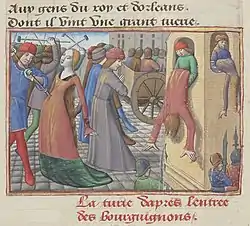 Auy gens du roy et dorleans
Dont il vint vne grant tuerie.
La turie d'apres lentree
des Bourguignons